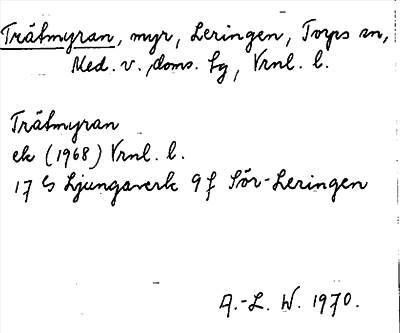 Trätmyran, myr, Leringen, Torps sn,
Med. v. doms. fg, Vrnl. l.
Trätmyran
ek (1968) Vrnl. l.
17 G Ljungaverk 9 f Sör-Leringen
A.-L. W. 1970.